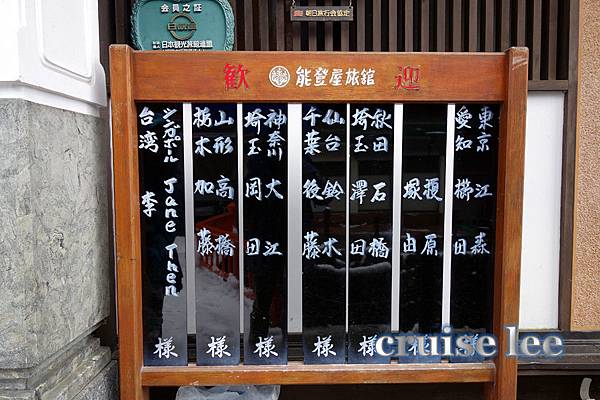 会員之証
JAPAN
日本観光旅館連盟
朝日旅行会協定
歓 能登屋旅館 迎
東京 江森
愛知 櫛田 様
榎原
塚由 様
秋田 石橋
埼玉 澤田 様
仙台 鈴木
千葉 後藤 様
神奈川 大江
埼玉 岡田 様
山形 高橋
栃木 加藤 様
シンガポール Jane Then
台湾 李 様
cruise lee